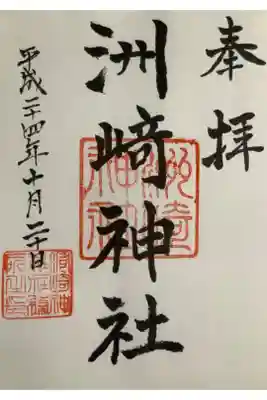 奉拝
洲崎神社
平成二十四年十月二十日